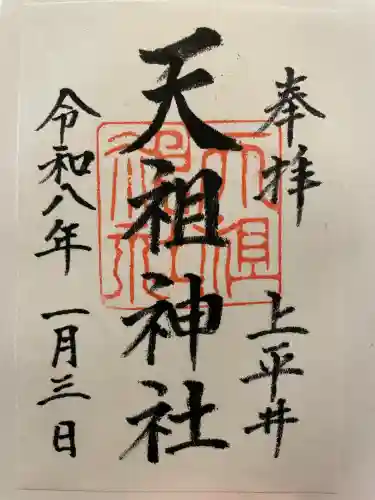 奉拝 上平井
天祖神社
令和八年 一月三日
天祖神社